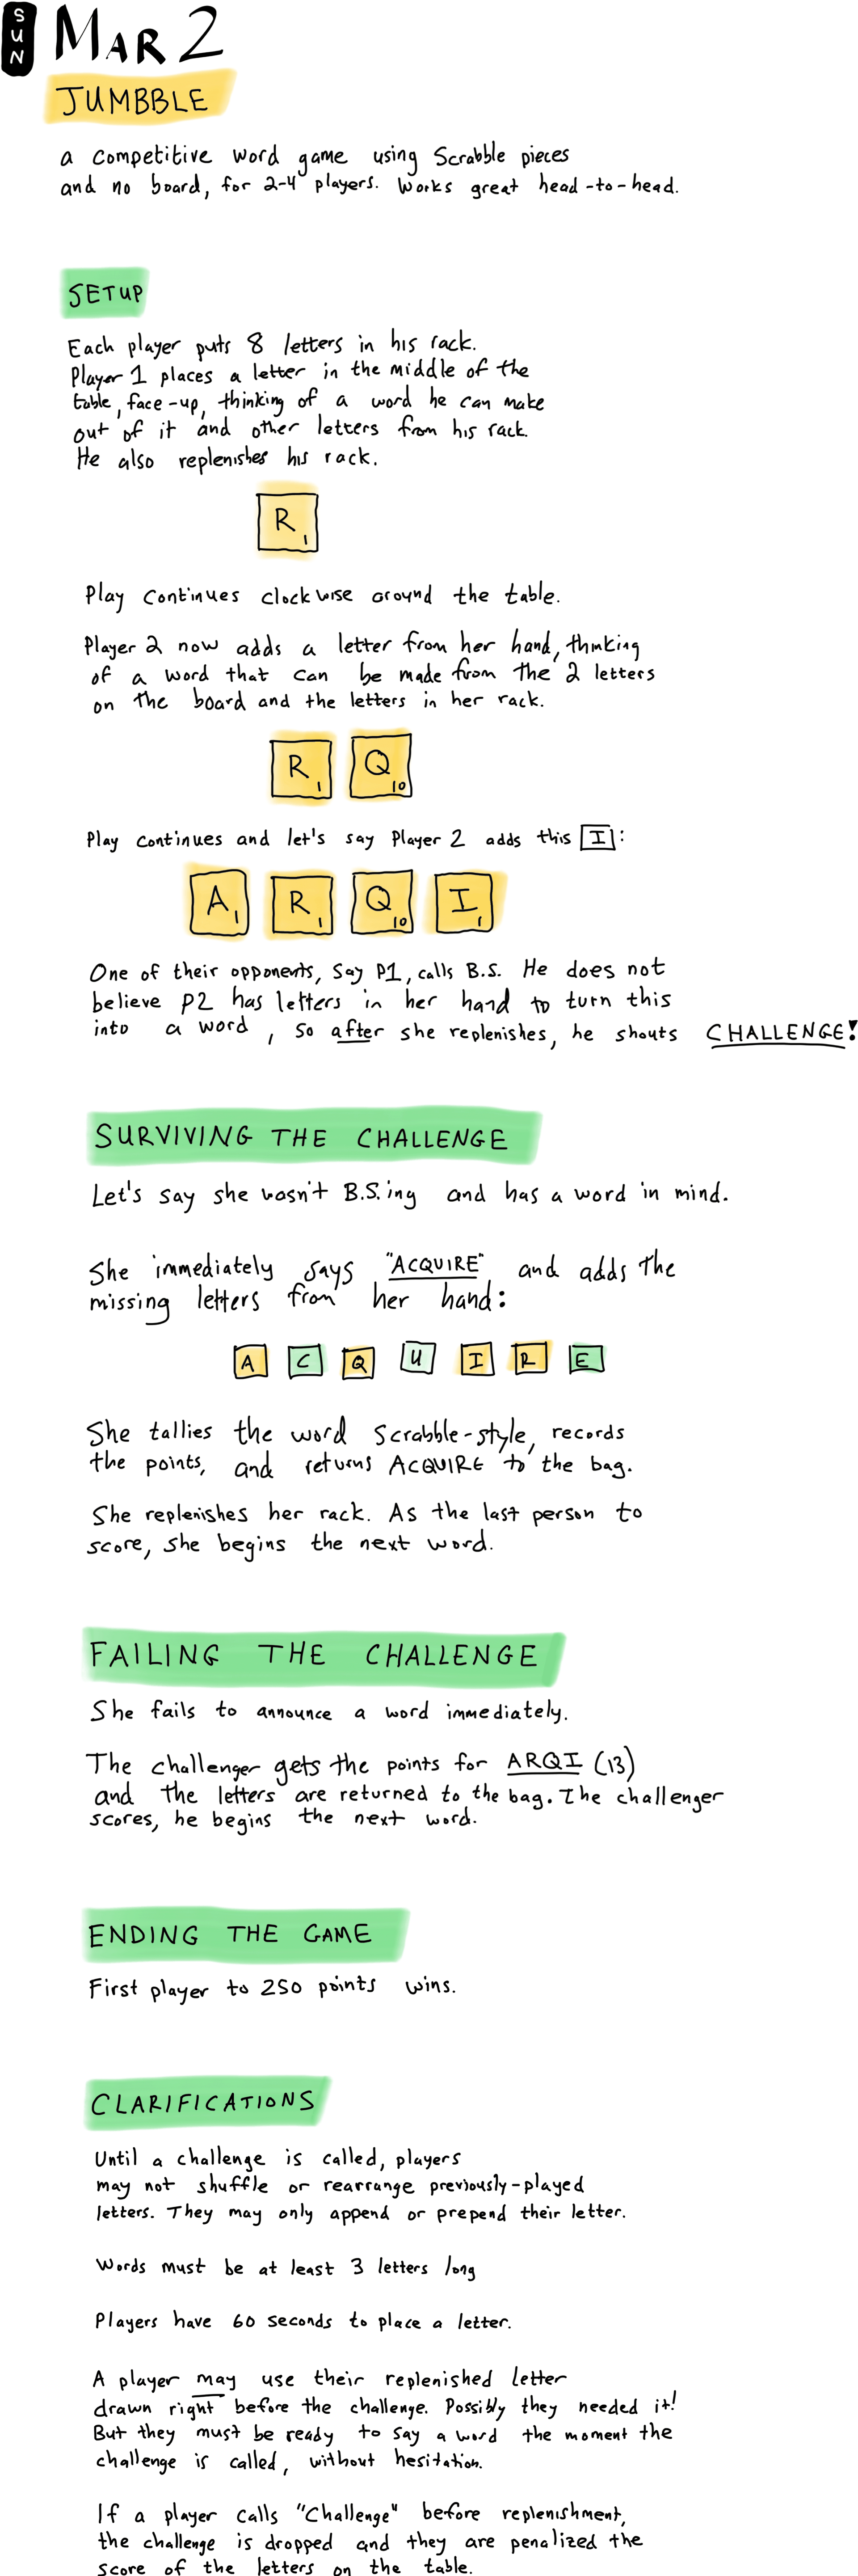 SUN
MAR 2
JUMBBLE
a competitive word game using Scrabble pieces
and no board, for 2-4 players. Works great head-to-head.
SETUP
Each player puts 8 letters in his rack.
Player 1 places a letter in the middle of the
table, face-up, thinking of a word he can make
out of it and other letters from his rack.
He also replenishes his rack.
R 1
Play continues clockwise around the table.
Player 2 now adds a letter from her hand, thinking
of a word that can be made from the 2 letters
on the board and the letters in her rack.
R 1 Q 10
Play continues and let's say Player 2 adds this I:
A 1 R 1 Q 10 I 1
One of their opponents, say P1, calls B.S. He does not
believe P2 has letters in her hand to turn this
into a word, so after she replenishes, he shouts CHALLENGE!
SURVIVING THE CHALLENGE
Let's say she wasn't B.S.ing and has a word in mind.
She immediately says "ACQUIRE" and adds the
missing letters from her hand:
A C Q U I R E
She tallies the word Scrabble-style, records
the points, and returns ACQUIRE to the bag.
She replenishes her rack. As the last person to
score, she begins the next word.
FAILING THE CHALLENGE
She fails to announce a word immediately.
The challenger gets the points for ARQI (13)
and the letters are returned to the bag. The challenger
scores, he begins the next word.
ENDING THE GAME
First player to 250 points wins.
CLARIFICATIONS
Until a challenge is called, players
may not shuffle or rearrange previously-played
letters. They may only append or prepend their letter.
Words must be at least 3 letters long
Players have 60 seconds to place a letter.
A player may use their replenished letter
drawn right before the challenge. Possibly they needed it!
But they must be ready to say a word the moment the
challenge is called, without hesitation.
If a player calls "Challenge" before replenishment,
the challenge is dropped and they are penalized the
score of the letters on the table.